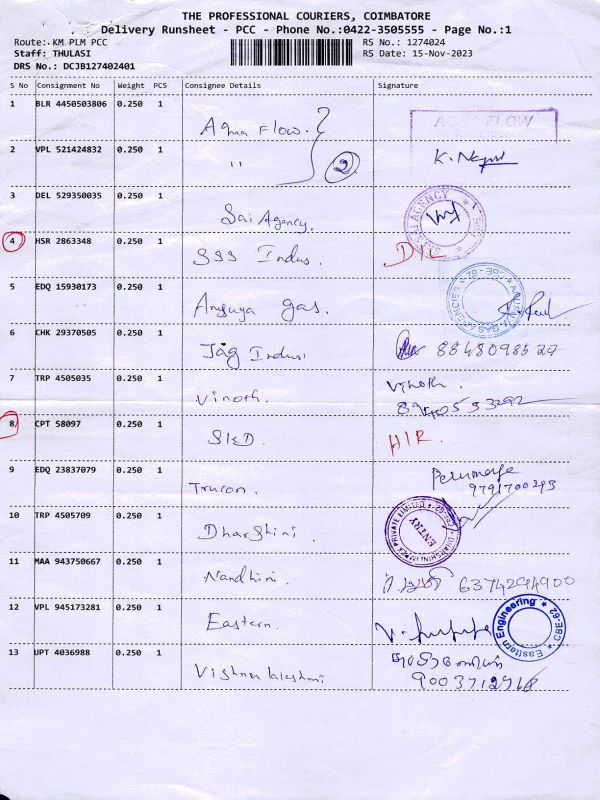 THE PROFESSIONAL COURIERS, COIMBATORE
Delivery Runsheet - PCC - Phone No.:0422-3505555 - Page No.:1
Route: KM PLM PCC RS No.: 1274024
Staff: THULASI RS Date: 15-Nov-2023
DRS No.: DCJB127402401
S No Consignment No Weight PCS Consignee Details Signature
1 BLR 4450503806 0.250 1 Aqua Flow. AQUA FLOW
2 VPL 521424832 0.250 1 " 2 K.
3 DEL 529350035 0.250 1 Sai Agency. SRI SAI AGENCY
4 HSR 2863348 0.250 1 SSS Indus. D/L
5 EDQ 15930173 0.250 1 Anusuya gas.
6 CHK 29370505 0.250 1 Jag Indus
7 TRP 4505035 0.250 1 Vinoth. Vinoth.
8 CPT 58097 0.250 1 H/R.
9 EDQ 23837079 0.250 1 Trucon.
9791700293
10 TRP 4505709 0.250 1 Dharshini DHARSHINI IMPEX PRIVATE LIMITED ENTRY
11 MAA 943750667 0.250 1 Nandhini. 6374294900
12 VPL 945173281 0.250 1 Eastern. Eastern Engineering * CBE-62 *
13 UPT 4036988 0.250 1 Vishnu lakshmi